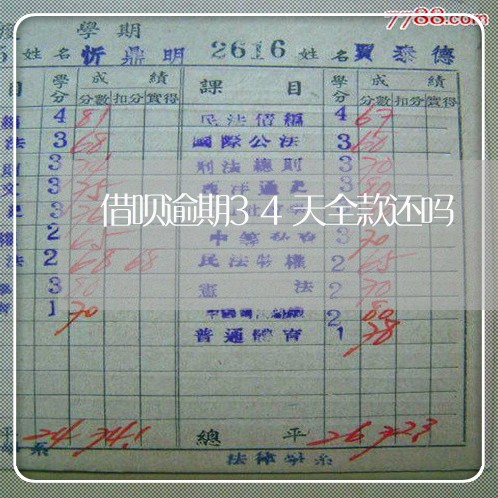 7788.com
學期
姓名 忻鼎明 2616 姓名 賈泰德
目 學分 成績 課目 學分 成績
分數 扣分 實得 分數 扣分 實得
4 81 民法債編 4 67
法 3 68 國際公法 3 60
3 刑法總則 3 70
3 75 西洋通史 3 80
借呗逾期34天全款还吗
2 65 3 70
法 2 68 68 民法物權 2 65
3 80 憲法 2 70
1 70 2 80
普通體育 1 78
平 24 74.1 總平 26 72.3
系 法律學系